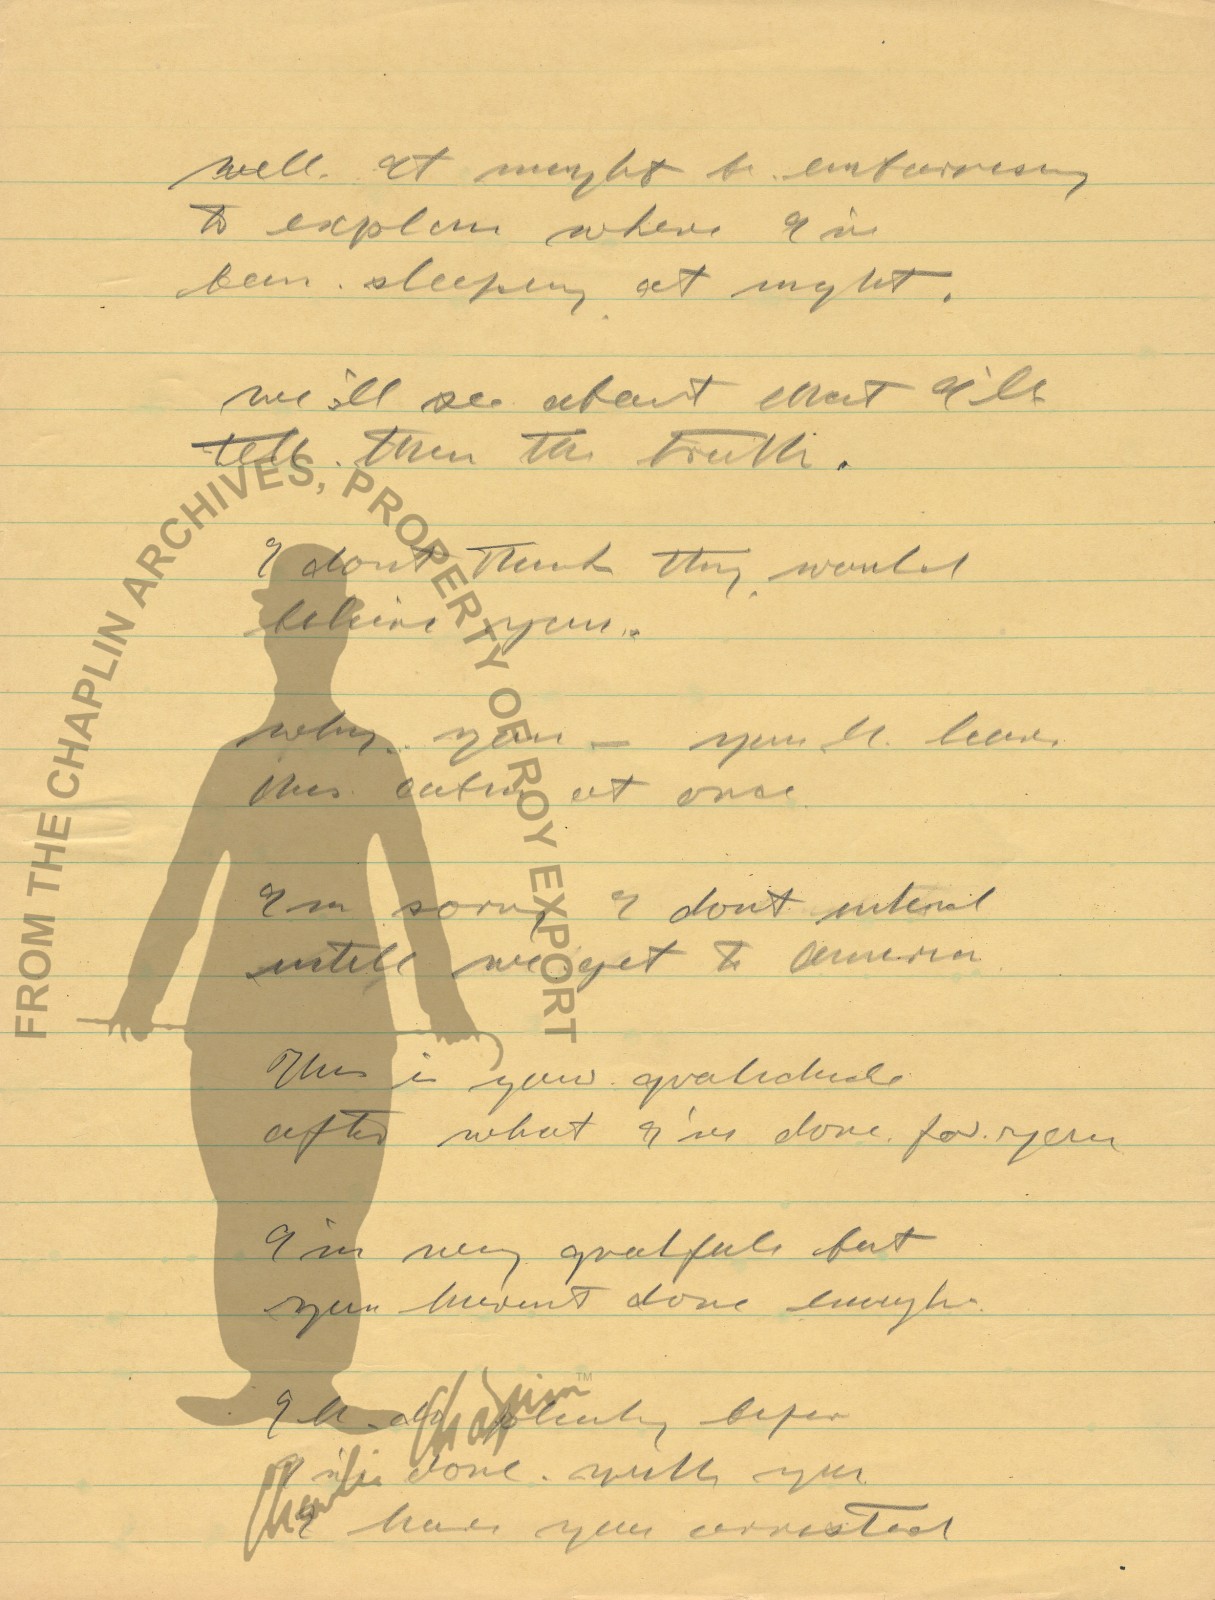 well. It might be embarresing
to explain where I've
been. sleeping at night.
we'll see about that I'll
tell. them the truth.
I dont think they would
believe you.
why.. you — you'll. leave
this cabin at once
I'm sorry I dont intend
untill we get to America
This is your gratidude
after what I've done. for. you
I'm very gratfule but
you havent done enough.
I'll. do plenty before
I've done. with you
I have you arrested
FROM THE CHAPLIN ARCHIVES, PROPERTY OF ROY EXPORT
Charlie Chaplin™